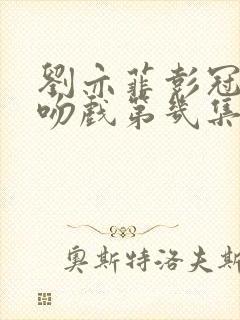 劉亦菲彭冠
吻戲第幾集
奧斯特洛夫斯